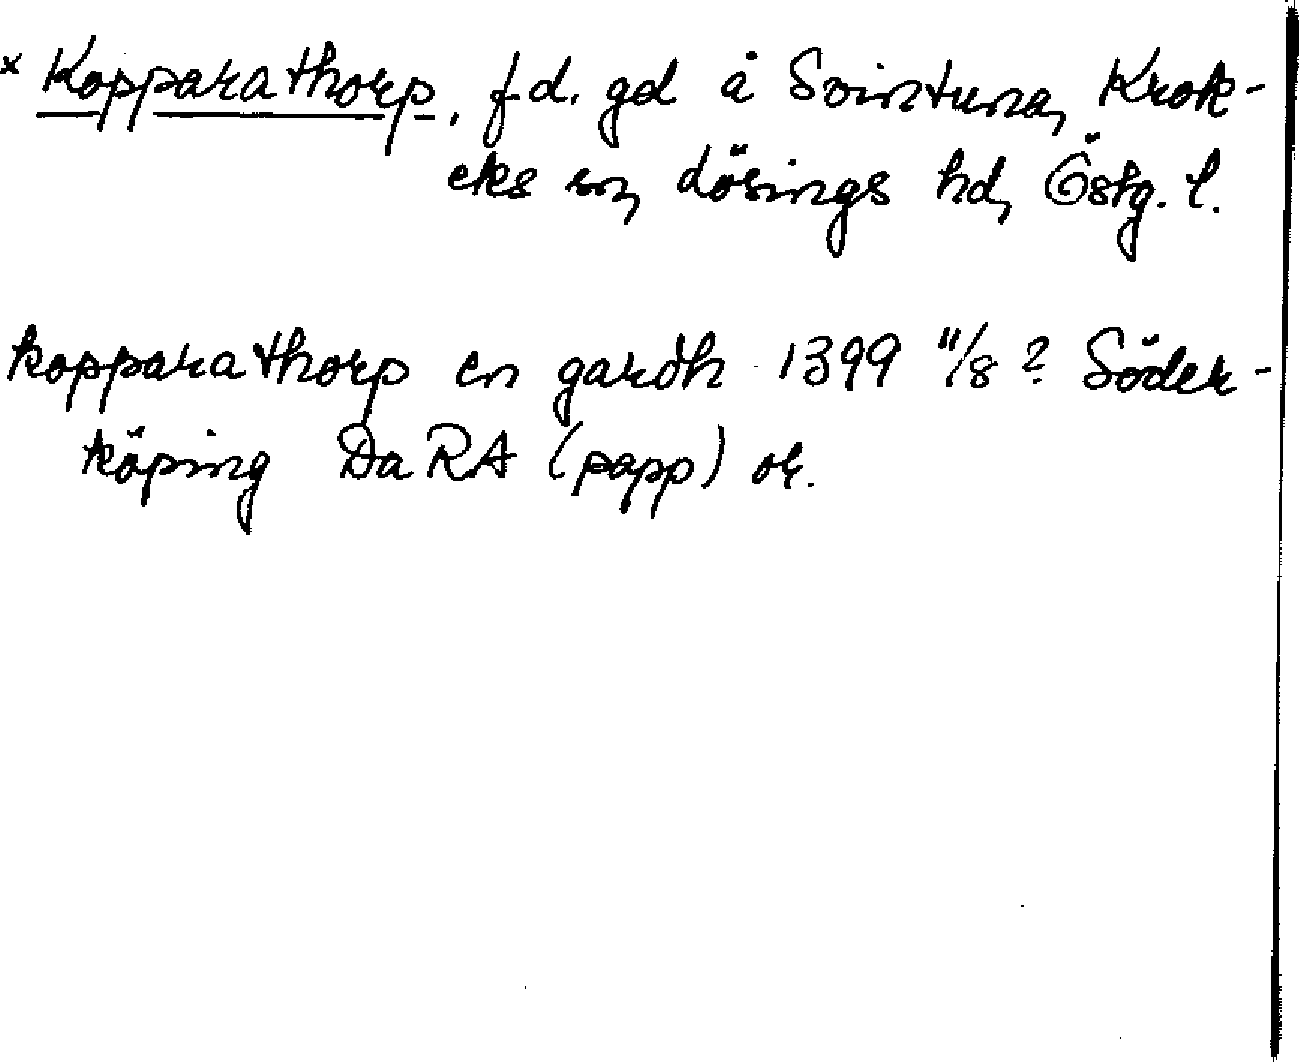 x Kopparathorp, f.d. gd å Svintuna, Krok-
eks sn, Lösings hd, Östg. l.
kopparathorp en gardh 1399 11/8? Söder-
köping Da RA (papp) or.